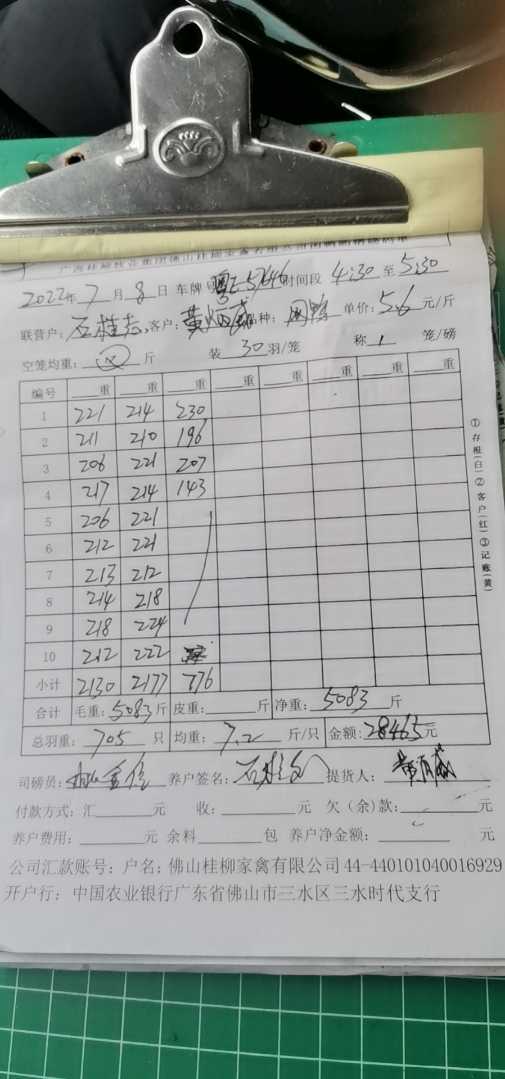 2022年7月8日 车牌 粤E 57646 时间段 4:30 至 5:30
联营户: 石桂志 客户: 黄炳威 品种: 单价: 5.6 元/斤
空笼均重: 斤 装 30 羽/笼 称 1 笼/磅
编号 重 重 重 重 重 重 重 重
1 221 214 230
2 211 210 196
3 206 221 207
4 217 214 143
5 206 221
6 212 221
7 213 212
8 214 218
9 218 224
10 212 222
小计 2130 2177 776
合计 毛重: 5083 斤 皮重: 斤 净重: 5083 斤
总羽重: 705 只 均重: 7.2 斤/只 金额: 28465 元
司磅员: 养户签名: 提货人:
付款方式: 汇 元 收: 元 欠(余)款: 元
养户费用: 元 余料 包 养户净金额: 元
公司汇款账号: 户名: 佛山桂柳家禽有限公司 44-440101040016929
开户行: 中国农业银行广东省佛山市三水区三水时代支行
①存根(白)②客户(红)③记账(黄)